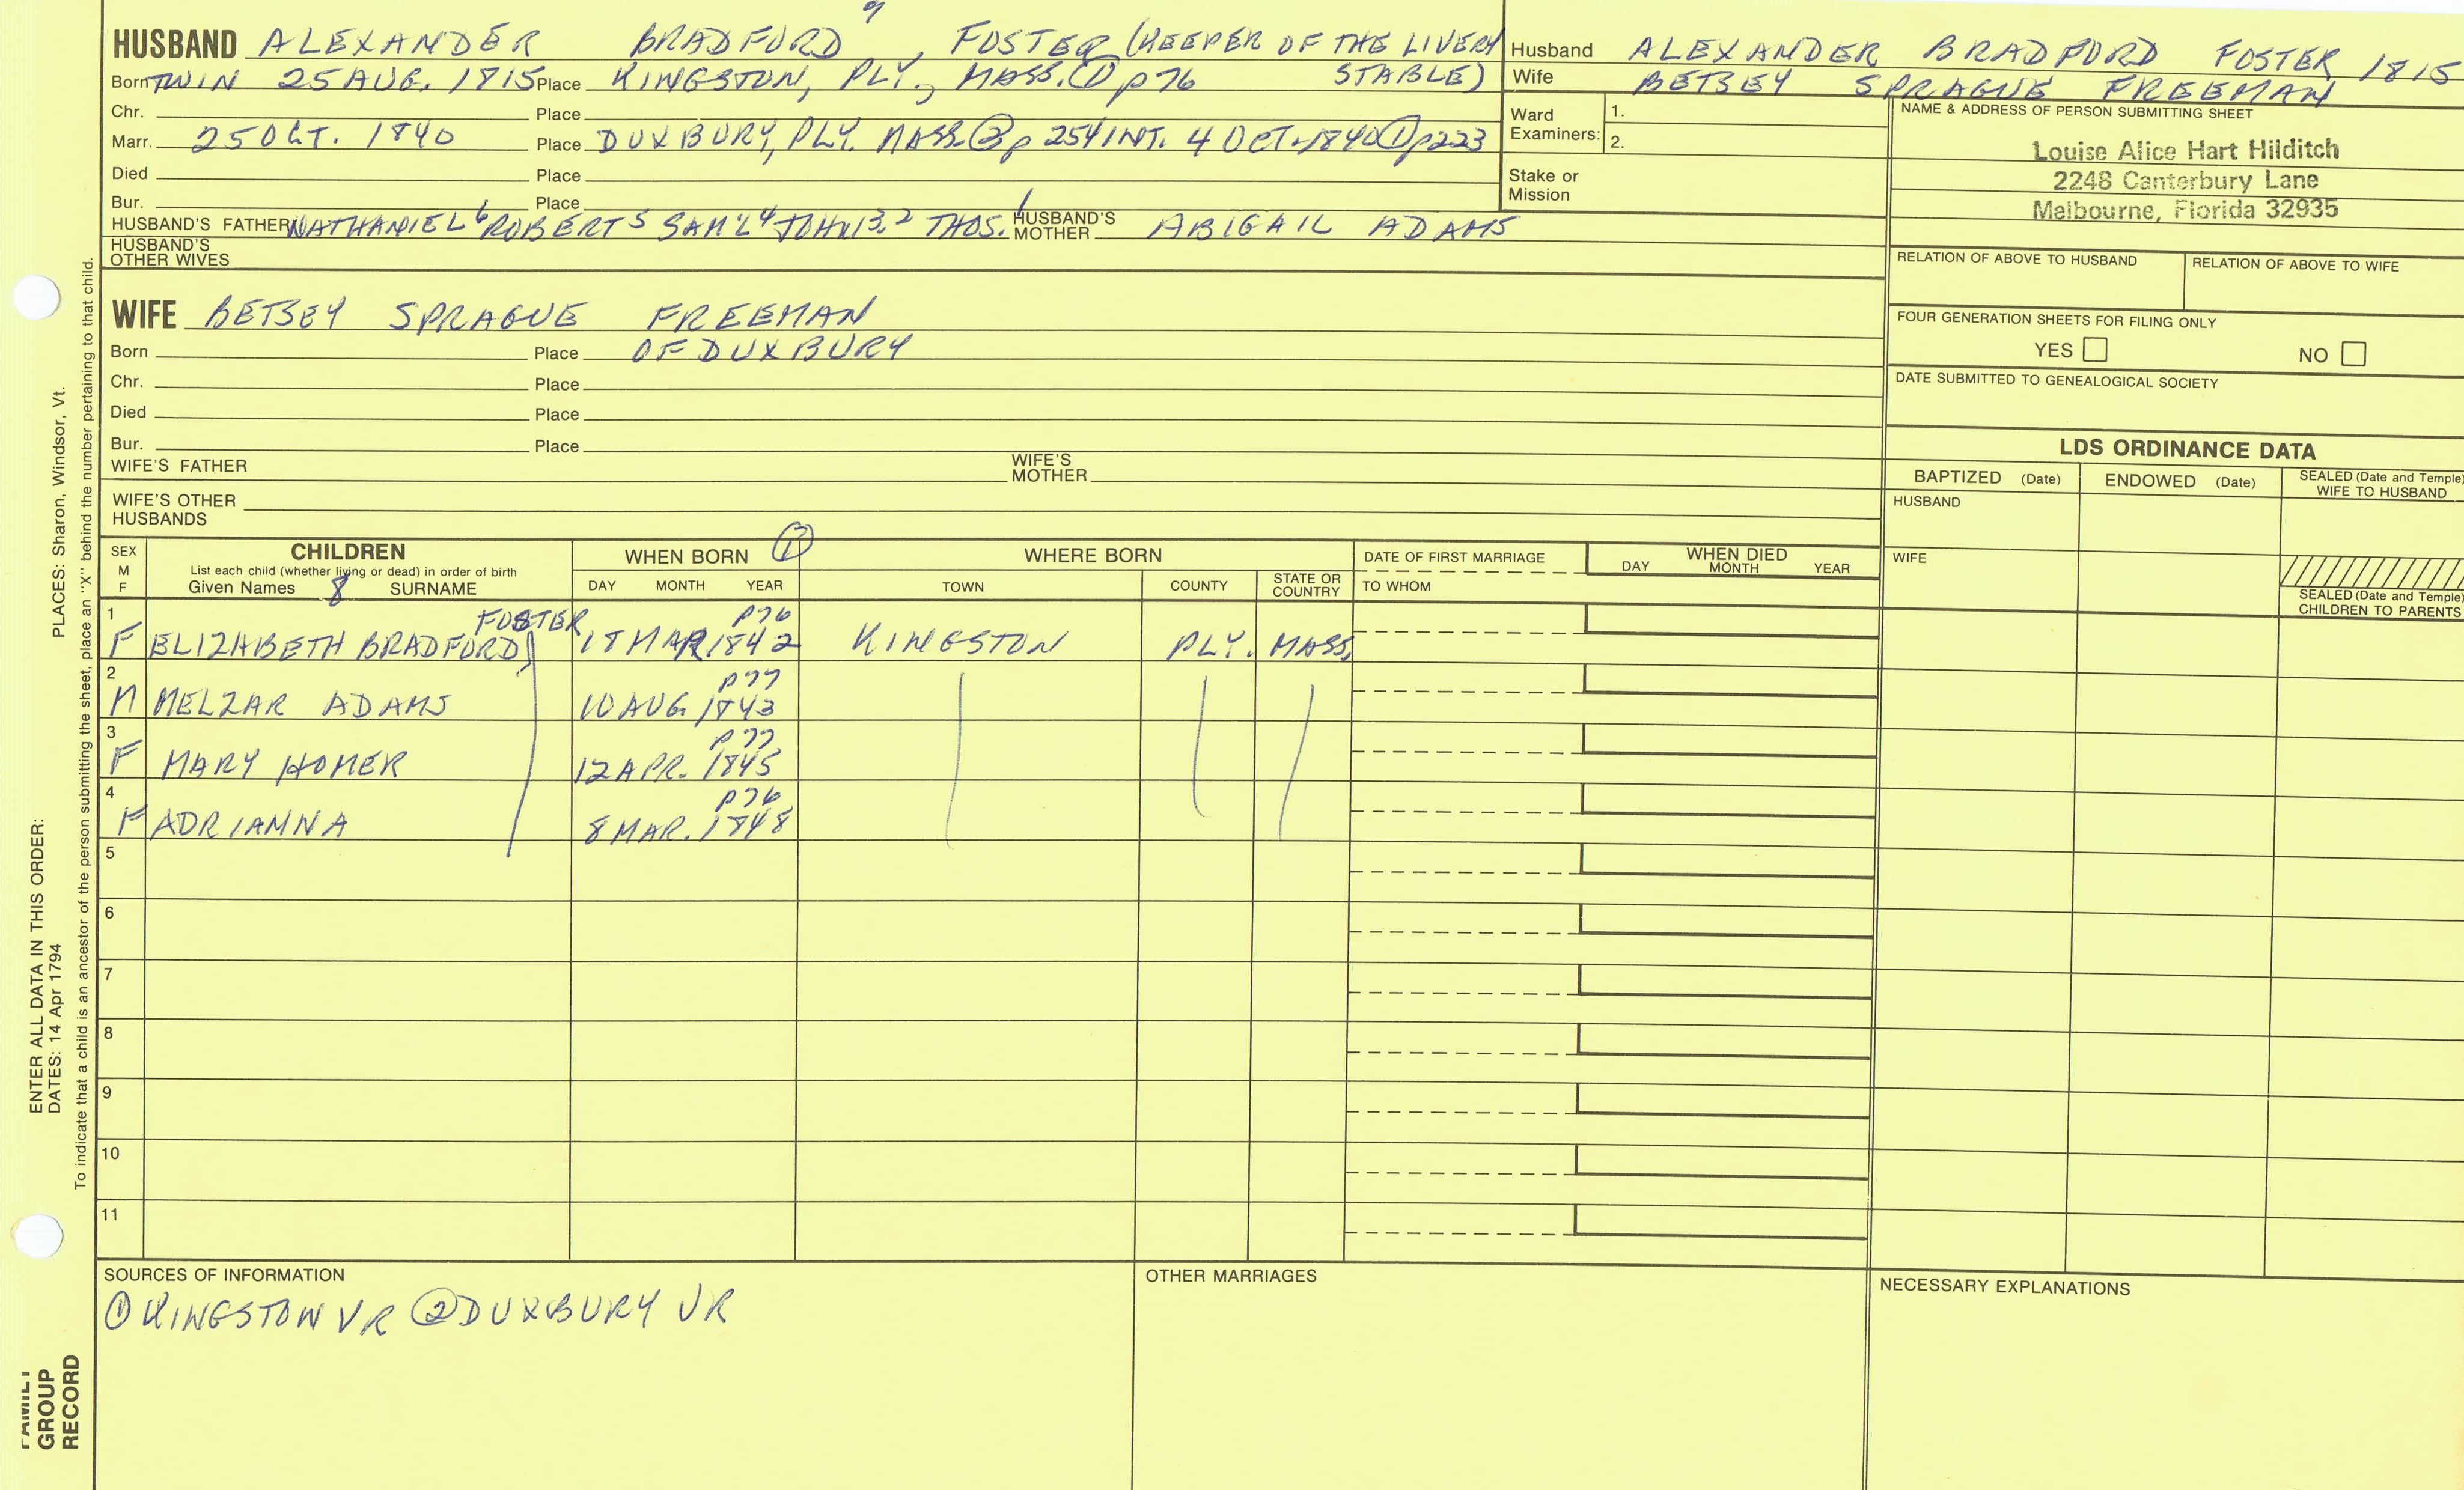 HUSBAND ALEXANDER BRADFORD , FOSTER (KEEPER OF THE LIVERY STABLE)
Born TWIN 25 AUG. 1815 Place KINGSTON, PLY., MASS. ① p 76
Chr. Place
Marr. 25 OCT. 1840 Place DUXBURY, PLY. MASS. ② p 254 INT. 4 OCT. 1840 ① p223
Died Place
Bur. Place
HUSBAND'S FATHER NATHANIEL 6 ROBERT 5 SAM'L 4 JOHN 3,2 THOS. 1 HUSBAND'S MOTHER ABIGAIL ADAMS
HUSBAND'S OTHER WIVES
WIFE BETSEY SPRAGUE FREEMAN
Born Place OF DUXBURY
Chr. Place
Died Place
Bur. Place
WIFE'S FATHER WIFE'S MOTHER
WIFE'S OTHER HUSBANDS
Husband ALEXANDER BRADFORD FOSTER 1815
Wife BETSEY SPRAGUE FREEMAN
Ward Examiners: 1.
2.
Stake or Mission
NAME & ADDRESS OF PERSON SUBMITTING SHEET
Louise Alice Hart Hilditch
2248 Canterbury Lane
Melbourne, Florida 32935
RELATION OF ABOVE TO HUSBAND RELATION OF ABOVE TO WIFE
FOUR GENERATION SHEETS FOR FILING ONLY
YES NO
DATE SUBMITTED TO GENEALOGICAL SOCIETY
LDS ORDINANCE DATA
BAPTIZED (Date) ENDOWED (Date) SEALED (Date and Temple) WIFE TO HUSBAND
HUSBAND
WIFE
SEALED (Date and Temple) CHILDREN TO PARENTS
SEX M F
CHILDREN
List each child (whether living or dead) in order of birth
Given Names 8 SURNAME
WHEN BORN ①
DAY MONTH YEAR
WHERE BORN
TOWN COUNTY STATE OR COUNTRY
DATE OF FIRST MARRIAGE
TO WHOM
WHEN DIED
DAY MONTH YEAR
1 FOSTER p76
F ELIZABETH BRADFORD 18 MAR 1842 KINGSTON PLY. MASS.
2 p77
M MELZAR ADAMS 10 AUG. 1843
3 p77
F MARY HOMER 12 APR. 1845
4 p76
F ADRIANNA 8 MAR. 1848
5
6
7
8
9
10
11
SOURCES OF INFORMATION
① KINGSTON VR ② DUXBURY VR
OTHER MARRIAGES
NECESSARY EXPLANATIONS
ENTER ALL DATA IN THIS ORDER:
DATES: 14 Apr 1794 PLACES: Sharon, Windsor, Vt.
To indicate that a child is an ancestor of the person submitting the sheet, place an "X" behind the number pertaining to that child.
FAMILY
GROUP
RECORD